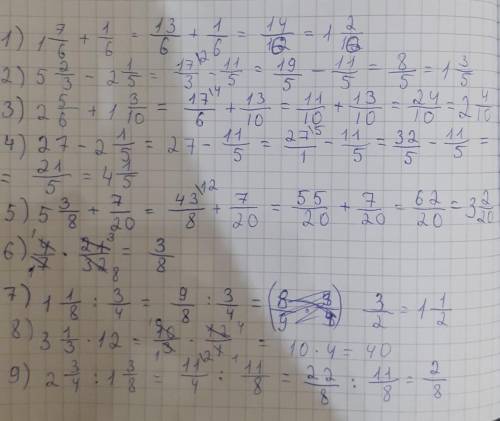 1) 1 7/6 + 1/6 = 13/6 + 1/6 = 14/12 = 1 2/12
2) 5 2/3 - 2 1/5 = 17/3 \2 - 11/5 = 19/5 - 11/5 = 8/5 = 1 3/5
3) 2 5/6 + 1 3/10 = 17/6 \4 + 13/10 = 11/10 + 13/10 = 24/10 = 2 4/10
4) 27 - 2 1/5 = 27 - 11/5 = 27/1 \5 - 11/5 = 32/5 - 11/5 =
= 21/5 = 4 1/5
5) 5 3/8 + 7/20 = 43/8 \12 + 7/20 = 55/20 + 7/20 = 62/20 = 3 2/20
6) = 3/8
7) 1 1/8 : 3/4 = 9/8 : 3/4 = 3/2 = 1 1/2
8) 3 1/3 · 12 = 10 · 4 = 40
9) 2 3/4 : 1 3/8 = 11/4 \2 : 11/8 = 22/8 : 11/8 = 2/8